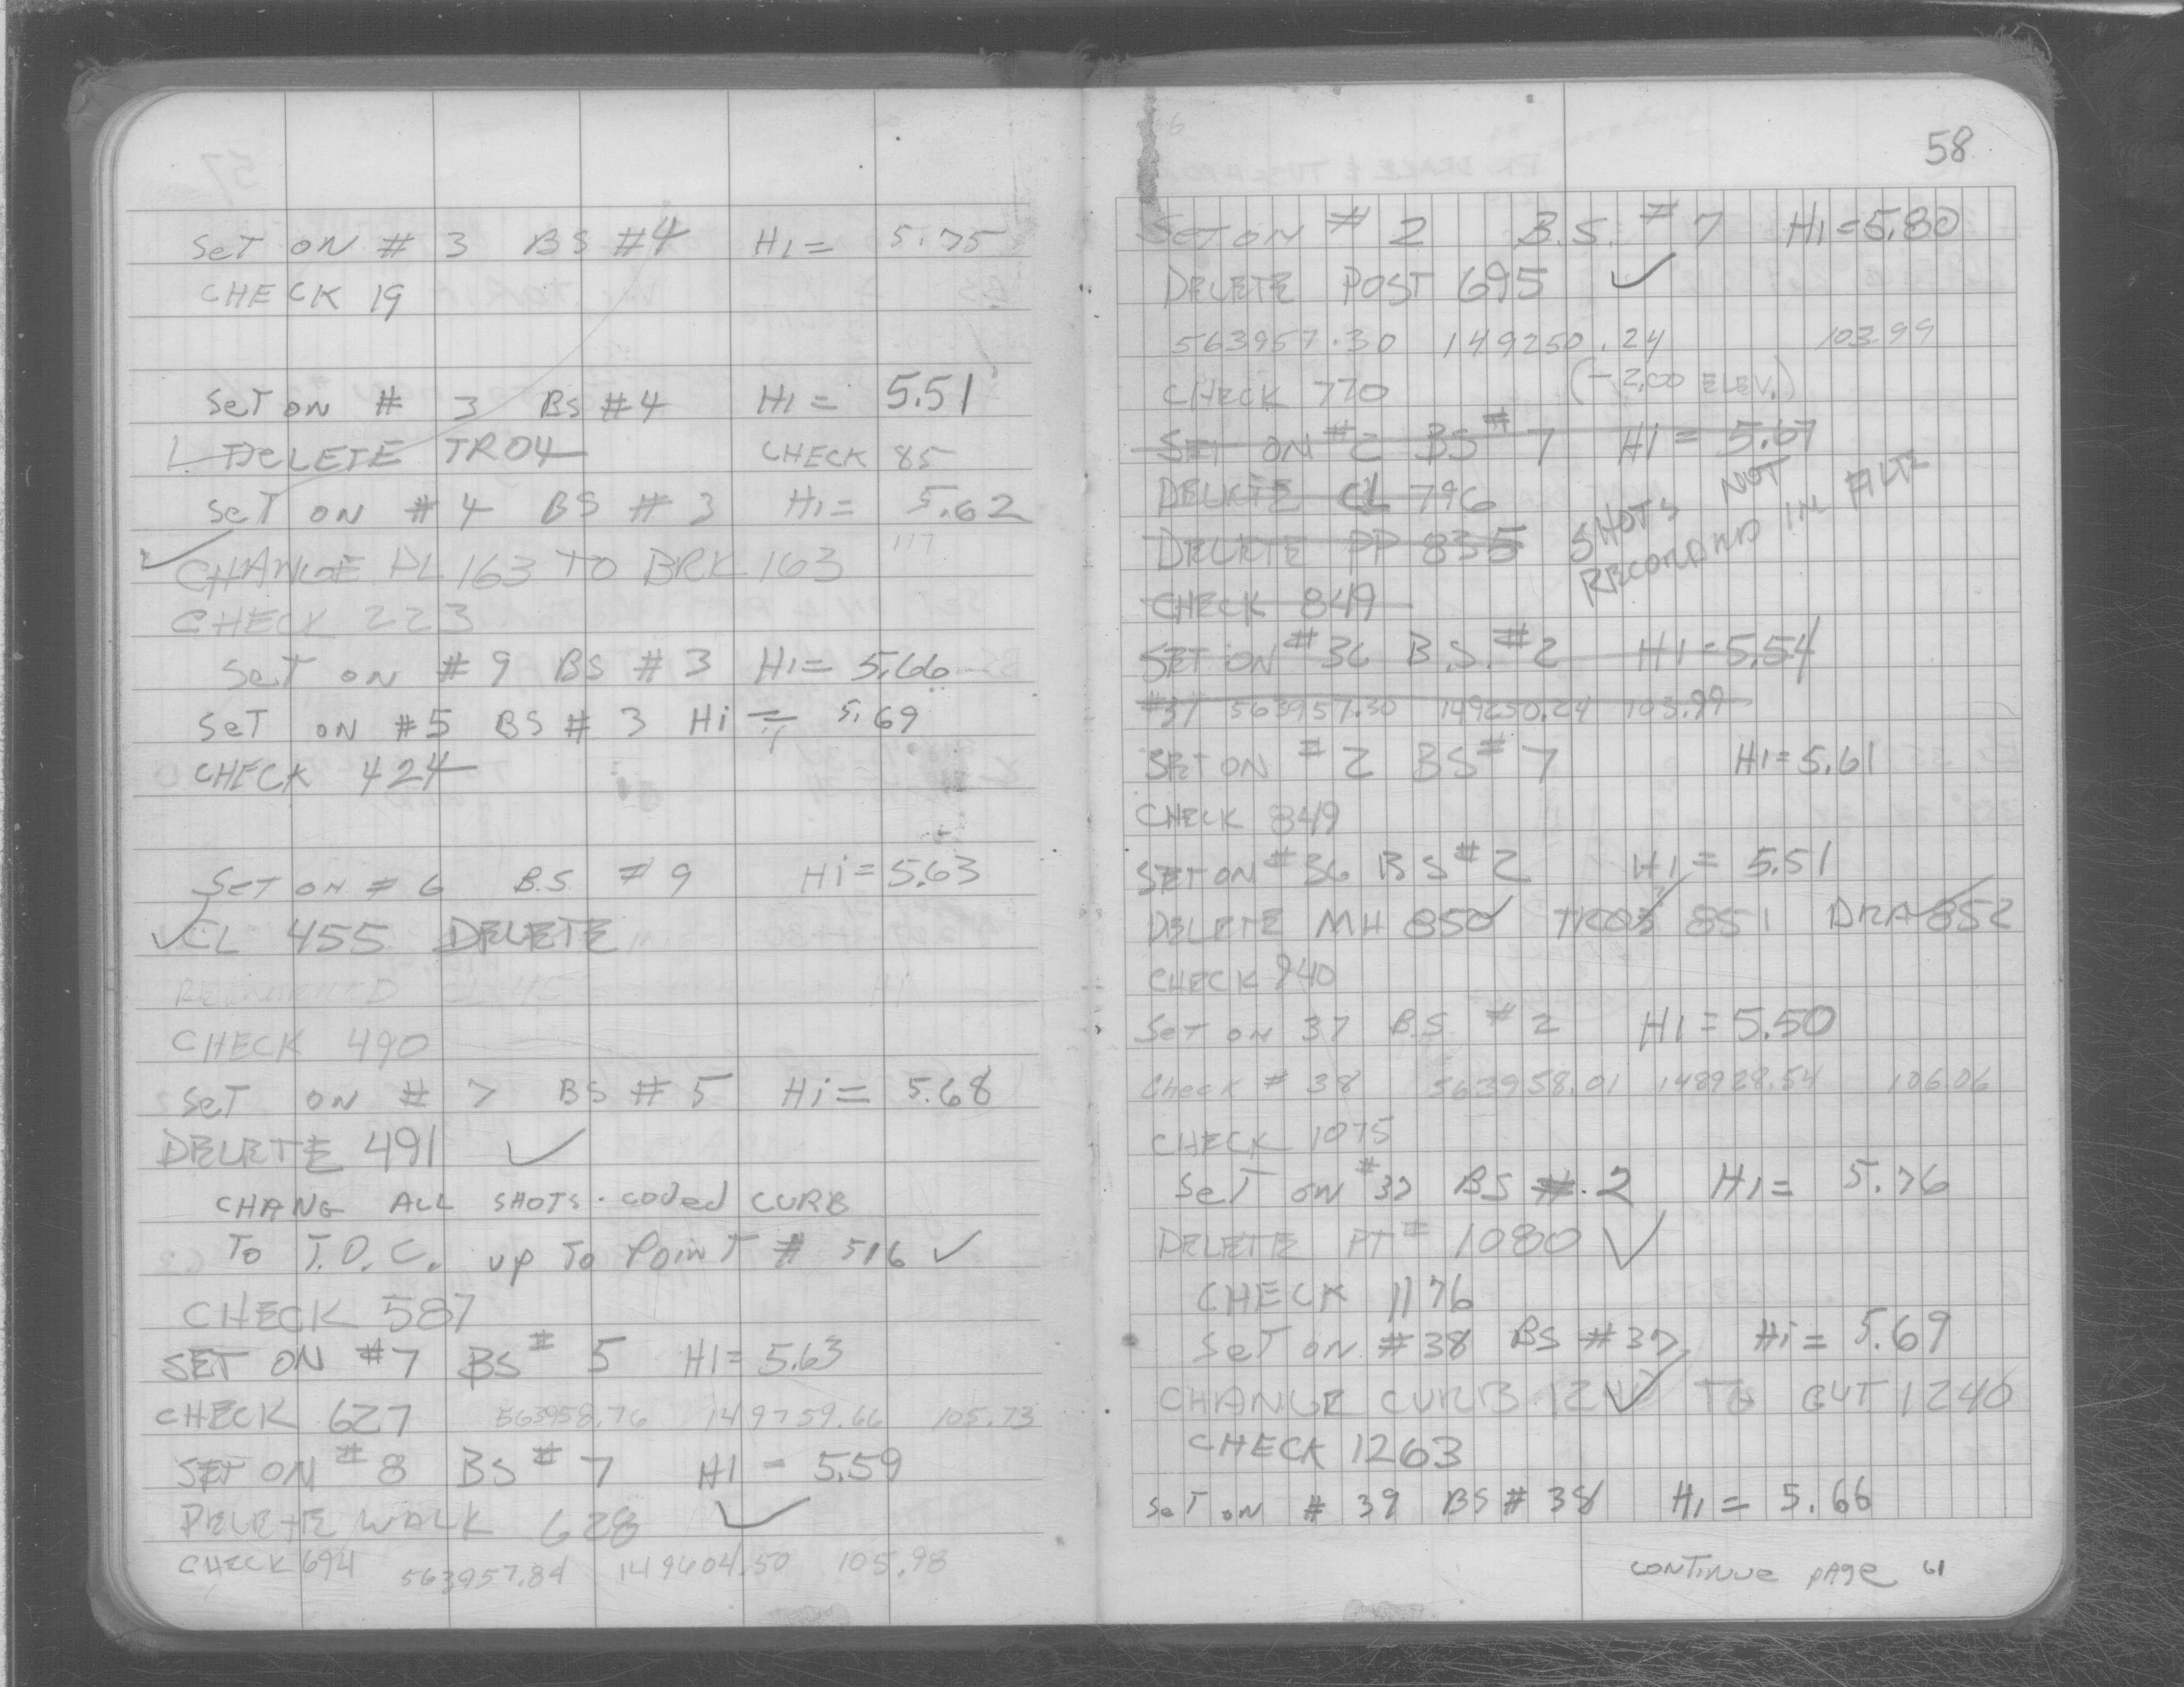 SET ON # 3 BS #4 HI = 5.75
CHECK 19
SET ON # 3 BS #4 HI = 5.51
DELETE TR04 CHECK 85
SET ON # 4 BS # 3 HI = 5.62
CHANGE PL 163 TO BRK 163 117
CHECK 223
SET ON # 9 BS # 3 HI = 5.66
SET ON #5 BS # 3 Hi = 5.69
CHECK 424
SET ON # 6 B.S. # 9 Hi = 5.63
CL 455 DELETE
CHECK 490
SET ON # 7 BS # 5 Hi = 5.68
DELETE 491 ✓
CHANG ALL SHOTS. coded CURB
TO T.O.C. up To Point # 516 ✓
CHECK 587
SET ON #7 BS # 5 HI = 5.63
CHECK 627 563958.76 149759.66 105.73
SET ON # 8 BS # 7 HI - 5.59
DELETE WALK 628 ✓
CHECK 694 563957.84 149604.50 105.98
58
SET ON # 2 B.S. # 7 HI = 5.80
DELETE POST 695 ✓
563957.30 149250.24 103.99
CHECK 770 (-2.00 ELEV.)
SET ON # 2 BS # 7 HI = 5.67
DELETE CL 796
DELETE PP 835
SHOTS NOT
RECORDED IN FILE
CHECK 849
SET ON # 36 B.S. # 2 HI = 5.54
#37 563957.30 149250.24 103.99
SET ON # 2 BS # 7 HI = 5.61
CHECK 849
SET ON # 36 BS # 2 HI = 5.51
DELETE MH 850 TR03 851 DRA 852
CHECK 940
SET ON 37 B.S. # 2 HI = 5.50
Check # 38 563958.01 148928.54 106.06
CHECK 1075
SET ON # 37 BS #. 2 HI = 5.76
DELETE PT # 1080 ✓
CHECK 1176
SET ON # 38 BS # 37 Hi = 5.69
CHANGE CURB TO GUT 1240
CHECK 1263
SET ON # 39 BS # 38 HI = 5.66
CONTINUE PAGE 61